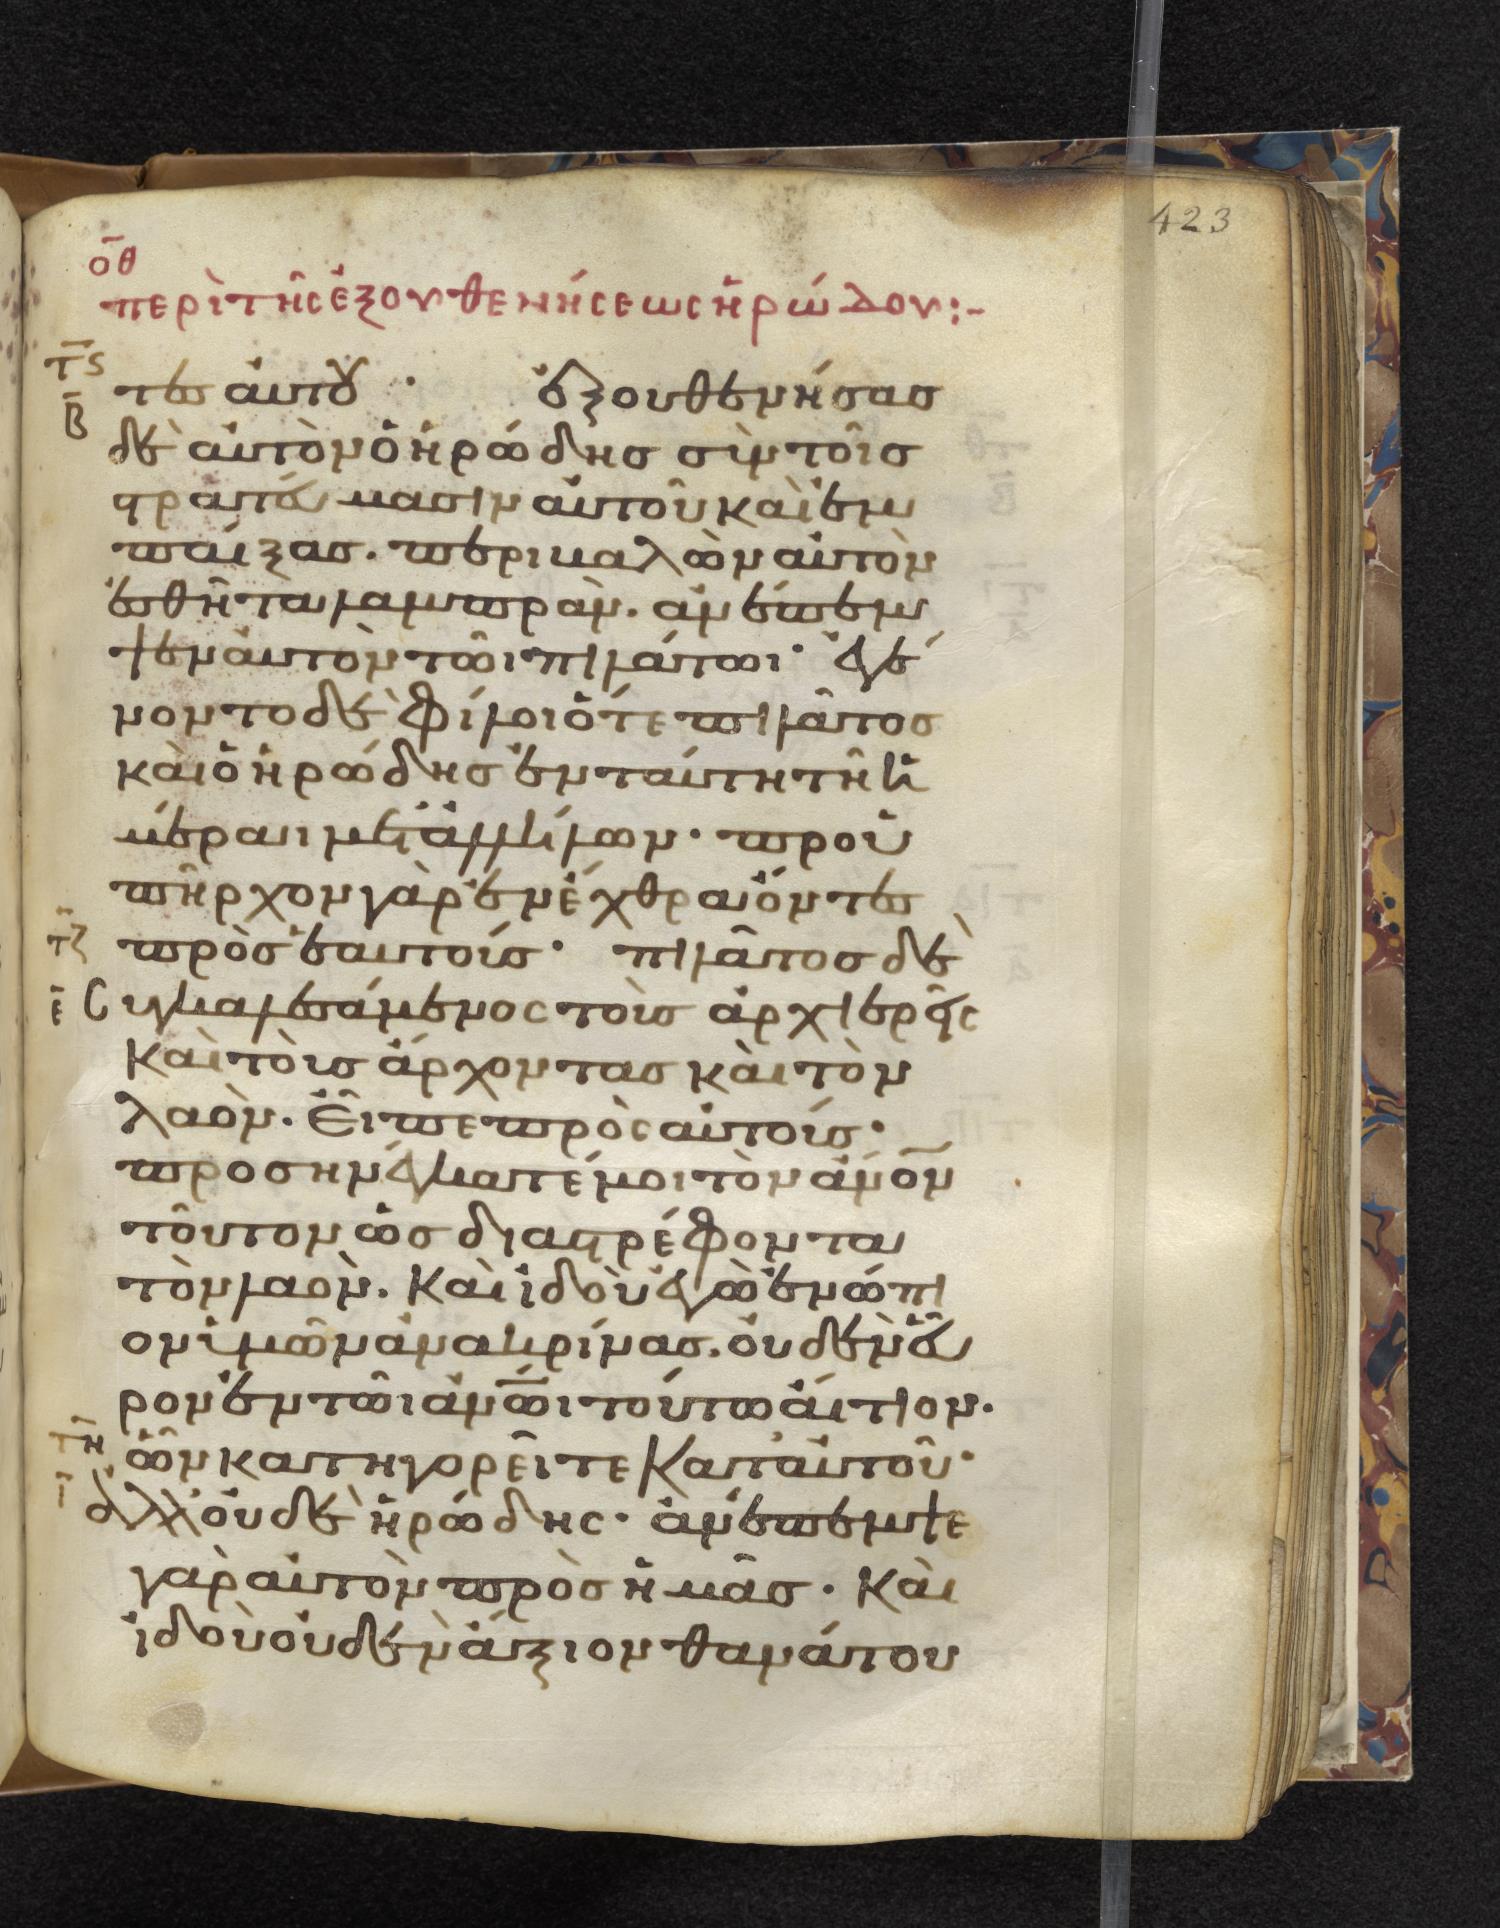 423
οθ
περὶ τῆς ἐξουθενήσεως ἡρώδου:-
τϛ
τες αὐτοῦ · ἐξουθενήσασ
β
δὲ αὐτὸν ὁ ἡρώδησ σὺν τοῖσ
στρατεύμασιν αὐτοῦ καὶ ἐμ
παίξασ. περιβαλὼν αὐτὸν
ἐσθῆτα λαμπρὰν. ἀνέπεμ
ψεν αὐτὸν τῶι πιλάτωι· ἐγέ
νοντο δὲ φίλοι ὅτε πιλᾶτοσ
καὶ ὁ ἡρώδησ ἐν ταύτη τῆ ἡ
μέραι μετ' ἀλλήλων· προϋ
πῆρχον γὰρ ἐν ἔχθραι ὄντες
τζ
πρὸσ ἑαυτούσ· πιλᾶτοσ δὲ
ε
Συγκαλεσάμενος τοὺσ ἀρχιερεῖς
καὶ τοὺσ ἄρχοντασ καὶ τὸν
λαὸν. Εἶπε πρὸς αὐτούσ·
προσηνέγκατέ μοι τὸν ἄνον
τοῦτον ὡσ διαστρέφοντα
τὸν λαὸν. Καὶ ἰδοὺ ἐγὼ ἐνώπι
ον ὑμῶν ἀνακρίνασ. οὐδὲν εὗ
ρον ἐν τῶι ἀνωι τούτω αἴτιον.
τη
ὧν κατηγορεῖτε κατ' αὐτοῦ·
ι
ἀλλ' οὐδὲ ἡρώδης· ἀνέπεμψε
γὰρ αὐτὸν πρὸσ ἡμᾶσ. καὶ
ἰδοὺ οὐδὲν ἄξιον θανάτου